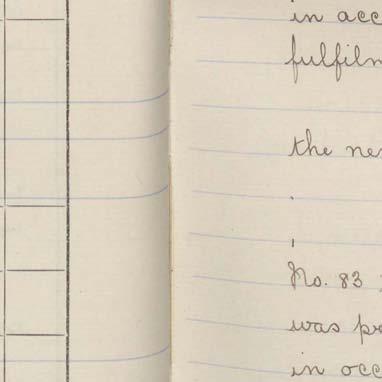 in acc
fulfilm
the ne
No. 83
was pr
in occ